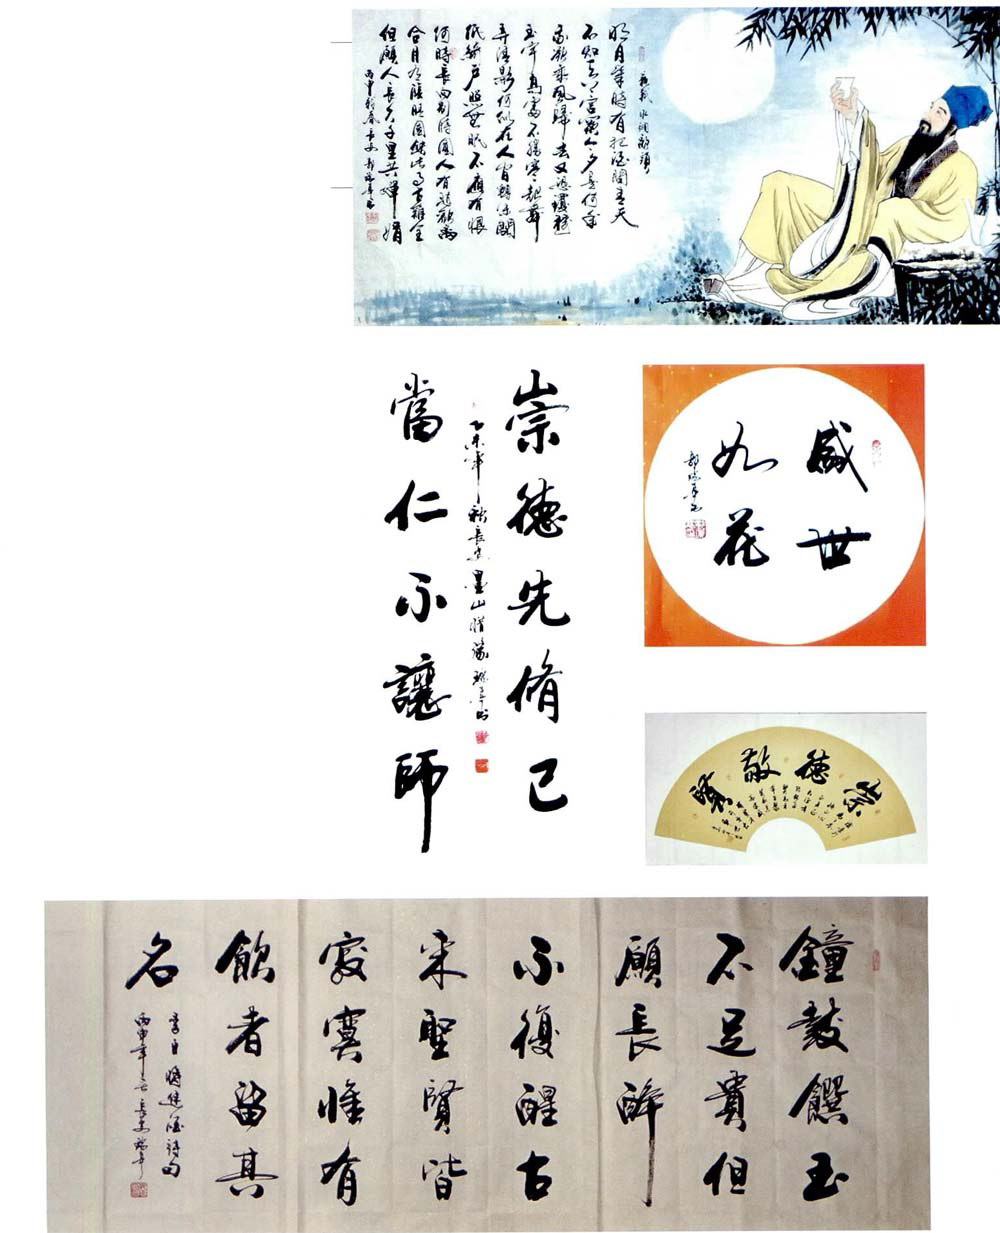 蘇軾 水調歌頭
明月幾時有把酒問青天
不知天上宮闕今夕是何年
我欲乘風歸去又恐瓊樓
玉宇高處不勝寒起舞
弄清影何似在人間轉朱閣
低綺戶照無眠不應有恨
何時長向別時圓人有悲歡離
合月有陰晴圓缺此事古難全
但願人長久千里共嬋娟
丙申 春長安
崇德先脩己
乙未年秋長安墨山
當仁不讓師
盛世
如花
崇德敬賢
鐘鼓饌玉
不足貴但
願長醉
不復醒古
来聖賢皆
寂寞惟有
飲者留其
名
李白將進酒詩句
丙申年 長安